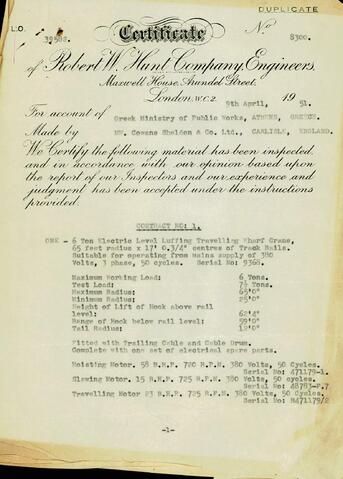 DUPLICATE
L.O. 39582. Certificate No 8300.
of Robert W. Hunt Company, Engineers,
Maxwell House, Arundel Street,
London, W.C.2. 9th April, 1951.
For account of Greek Ministry of Public Works, ATHENS, GREECE.
Made by WM. Cowans Sheldon & Co. Ltd., CARLISLE, ENGLAND.
We Certify the following material has been inspected,
and in accordance with our opinion based upon
the report of our Inspectors and our experience and
judgment has been accepted under the instructions
provided.
CONTRACT NO: 1.
ONE - 6 Ton Electric Level Luffing Travelling Wharf Crane,
65 feet radius x 17' 0.3/4" centres of Track Rails.
Suitable for operating from mains supply of 380
Volts, 3 phase, 50 cycles. Serial No: 9368.
Maximum Working Load: 6 Tons.
Test Load: 7½ Tons.
Maximum Radius: 65'0"
Minimum Radius: 25'0"
Height of Lift of Hook above rail
level: 62'4"
Range of Hook below rail level: 59'0"
Tail Radius: 12'0"
Fitted with Trailing Cable and Cable Drum.
Complete with one set of electrical spare parts.
Hoisting Motor. 58 B.H.P. 720 R.P.M. 380 Volts, 50 Cycles.
Serial No: 471179-1.
Slewing Motor. 15 B.H.P. 725 R.P.M. 380 Volts, 50 cycles.
Serial No: 48783-P.7
Travelling Motor 23 B.H.P. 725 R.P.M. 380 Volts, 50 Cycles.
Serial No: H471179/2
-1-